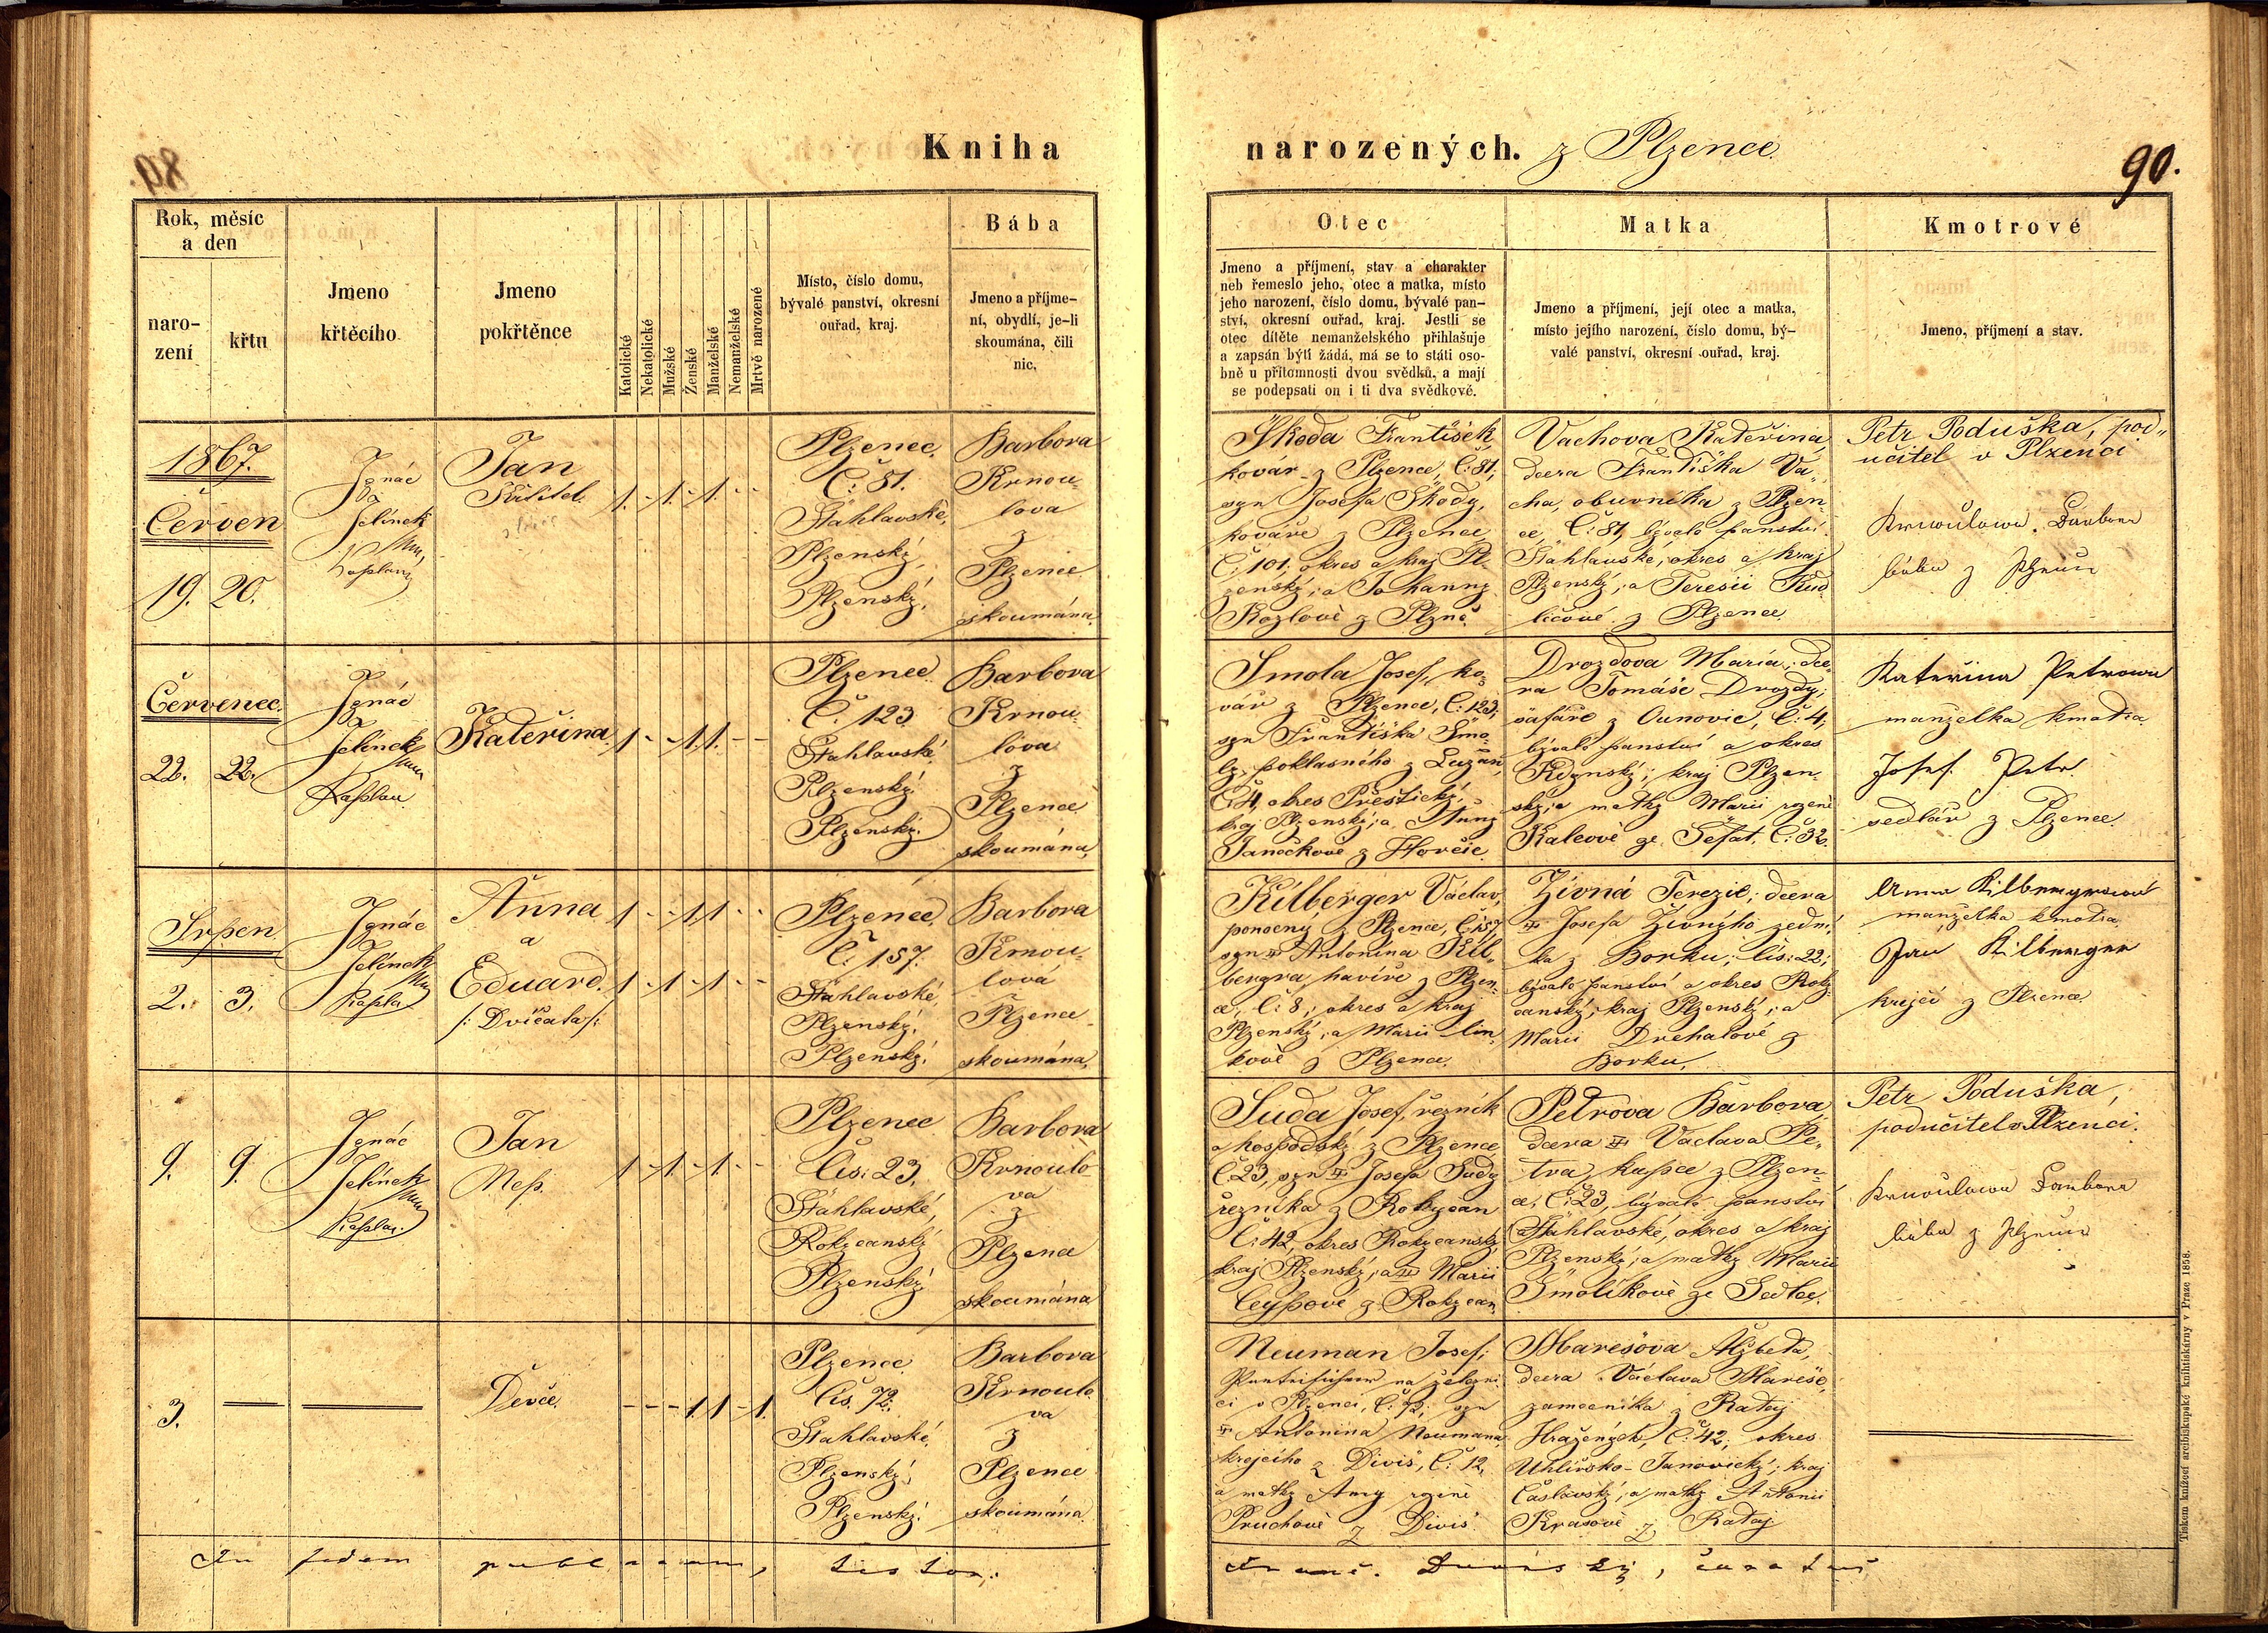 89.
Kniha
narozených. z Plzence.
90.
Rok, měsíc
a den
naro-
zení
křtu
Jmeno
křtěcího
Jmeno
pokřtěnce
Katolické
Nekatolické
Mužské
Ženské
Manželské
Nemanželské
Mrtvě narozené
Místo, číslo domu,
bývalé panství, okresní
ouřad, kraj.
Bába
Jmeno a příjme-
ní, obydlí, je-li
skoumána, čili
nic.
Otec
Jmeno a příjmení, stav a charakter
neb řemeslo jeho, otec a matka, místo
jeho narození, číslo domu, bývalé pan-
ství, okresní ouřad, kraj. Jestli se
otec dítěte nemanželského přihlašuje
a zapsán býti žádá, má se to státi oso-
bně u přítomnosti dvou svědků, a mají
se podepsati on i ti dva svědkové.
Matka
Jmeno a příjmení, její otec a matka,
místo jejího narození, číslo domu, bý-
valé panství, okresní ouřad, kraj.
Kmotrové
Jmeno, příjmení a stav.
1867.
Červen
19. 20.
Ignác
Jelínek
kaplan
Jan
Křtitel.
1. - 1. - 1. - -
Plzenec.
Č: 81.
Šťáhlavské,
Plzenský,
Plzenský.
Barbora
Krnou-
lova
z
Plzence
skoumána.
Škoda František,
kovář z Plzence, Č: 81,
syn Josefa Škody,
kováře z Plzence,
Č: 101. okres a kraj Pl-
zenský; a Johanny
Kozlové z Plzně.
Vachova Kateřina,
dcera Františka Va-
cha, obuvníka z Plzen-
ce, Č: 81, bývalé panství
Šťáhlavské, okres a kraj
Plzenský; a Teresii Kud-
ličové z Plzence.
Petr Poduška, pod-
učitel v Plzenci
Krnoulowa Barbora
bába z Plzence
Červenec.
22. 22.
Ignác
Jelínek
Kaplan
Kateřina.
1 - - 1. 1. - -
Plzenec.
Č. 123
Šťahlavské,
Plzenský.
Plzenský.
Barbora
Krnou-
lova
z
Plzence
skoumána,
Smola Josef, ko-
vář z Plzence, Č: 123,
syn Františka Smo-
ly, poklasného z Lužan,
Č: 4, okres Přeštický,
kraj Plzenský; a Anny
Janečkové z Horšic.
Drozdova Maria; dce-
ra Tomáše Drozdy;
šafáře z Ounovic, Č: 4,
bývalé panství a okres
Kdynský; kraj Plzen-
ský; a matky Marii rozené
Kalcové ze Těšat, Č: 32.
Kateřina Petrowa
manželka kmotra
Josef Petr.
sedlář z Plzence.
Srpen
2. 3.
Ignác
Jelínek
Kaplan
Anna
a
Eduard.
/: Dvíčata :/
1 - - 1 1 - -
1 - 1 - 1 - -
Plzenec.
Č. 157.
Šťahlavské,
Plzenský.
Plzenský.
Barbora
Krnou-
lová
Plzence
skoumána,
Kilberger Václav,
ponocny z Plzence, Č: 157,
syn Antonína Kil-
bergra, havíře z Plzen-
ce, č: 8; okres a kraj
Plzenský; a Marii Cin-
kové z Plzence.
Živná Terezie; dcera
Josefa Živnýho zední-
ka z Borku; čís: 22;
bývalé panství a okres Roky-
canský; kraj Plzenský; a
Marii Drchalové z
Borku.
Anna Kilbergrowa
manželka kmotra
Jan Kilberger
krejčí z Plzence
9. 9.
Ignác
Jelínek
Kaplan.
Jan
Nep.
1 - 1. - 1. - -
Plzenec
Čís: 23.
Šťahlavské,
Rokycanský
Plzenský.
Barbora
Krnoulo-
va
z
Plzence
skoumána
Suda Josef, řezník
a hospodský z Plzence
Č: 23, syn Josefa Sudy
řezníka z Rokycan
Č: 42, okres Rokycanský
kraj Plzenský; a Marii
Ceypové z Rokycan.
Petrova Barbora,
dcera Vaclava Pe-
tra, kupce z Plzen-
ce, Č: 23, bývalé panství
Šťahlavské, okres a kraj
Plzenský; a matky Marii
Smolíkové ze Sedlec.
Petr Poduška,
podučitel v Plzenci.
Krnoulowa Barbora
bába z Plzence
3.
Děvče.
- - - 1. 1 - 1.
Plzence
Čís. 72.
Šťahlavské,
Plzenský,
Plzenský.
Barbora
Krnoulo-
va
z
Plzence
skoumána.
Neuman Josef;
na železni-
ci v Plzenci, Č: 72; syn
Antonina Neumana,
krejčího z Diviš, Č: 12,
a matky Anny rozené
Pruchové z Diviš
Marešova Alžbeta,
dcera Václava Mareše,
zamečníka z Rataj
Hražených, Č: 42, okres
Uhlířsko-Janovický; kraj
Čáslavský; a matky Antonii
Krasové z Rataj
Tiskem knížecí arcibiskupské knihtiskárny v Praze 1858.